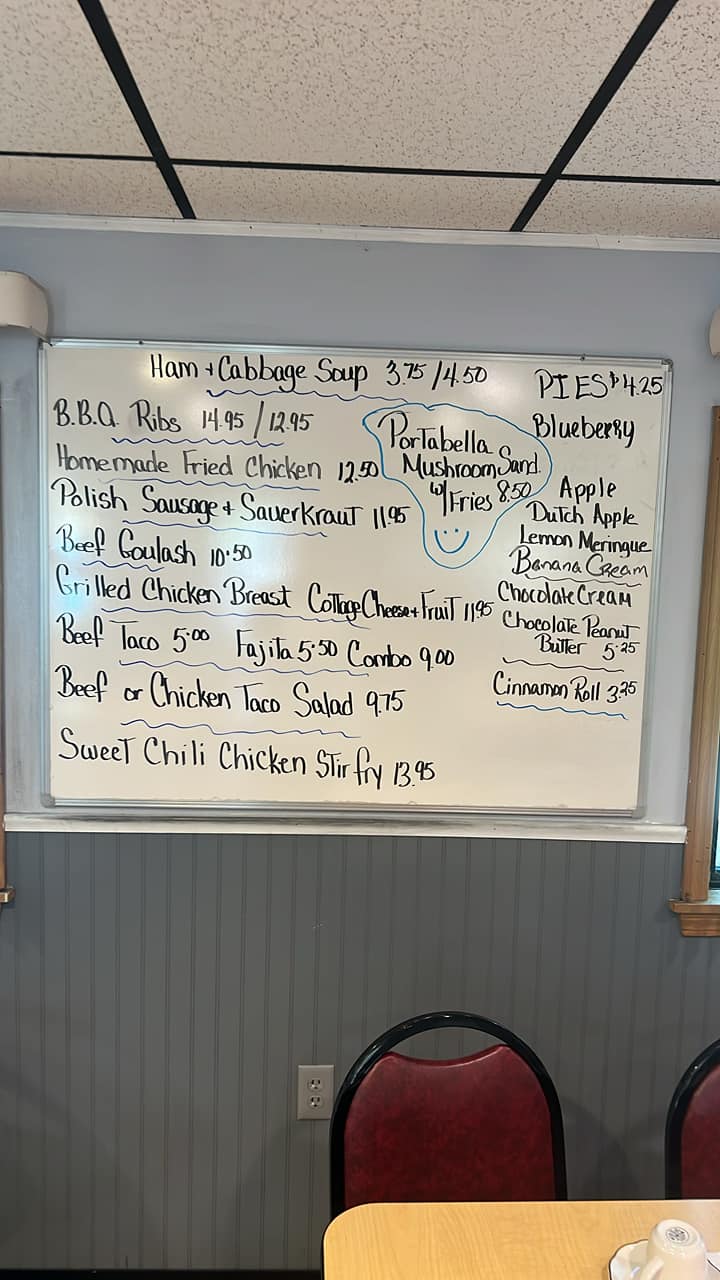 Ham + Cabbage Soup 3.75 / 4.50
B.B.Q. Ribs 14.95 / 12.95
Homemade Fried Chicken 12.50
Polish Sausage + Sauerkraut 11.95
Beef Goulash 10.50
Grilled Chicken Breast Cottage Cheese + Fruit 11.95
Beef Taco 5.00 Fajita 5.50 Combo 9.00
Beef or Chicken Taco Salad 9.75
Sweet Chili Chicken Stir fry 13.95
Portabella
Mushroom Sand.
w/ Fries 8.50
PIES $4.25
Blueberry
Apple
Dutch Apple
Lemon Meringue
Banana Cream
Chocolate Cream
Chocolate Peanut
Butter 5.25
Cinnamon Roll 3.25